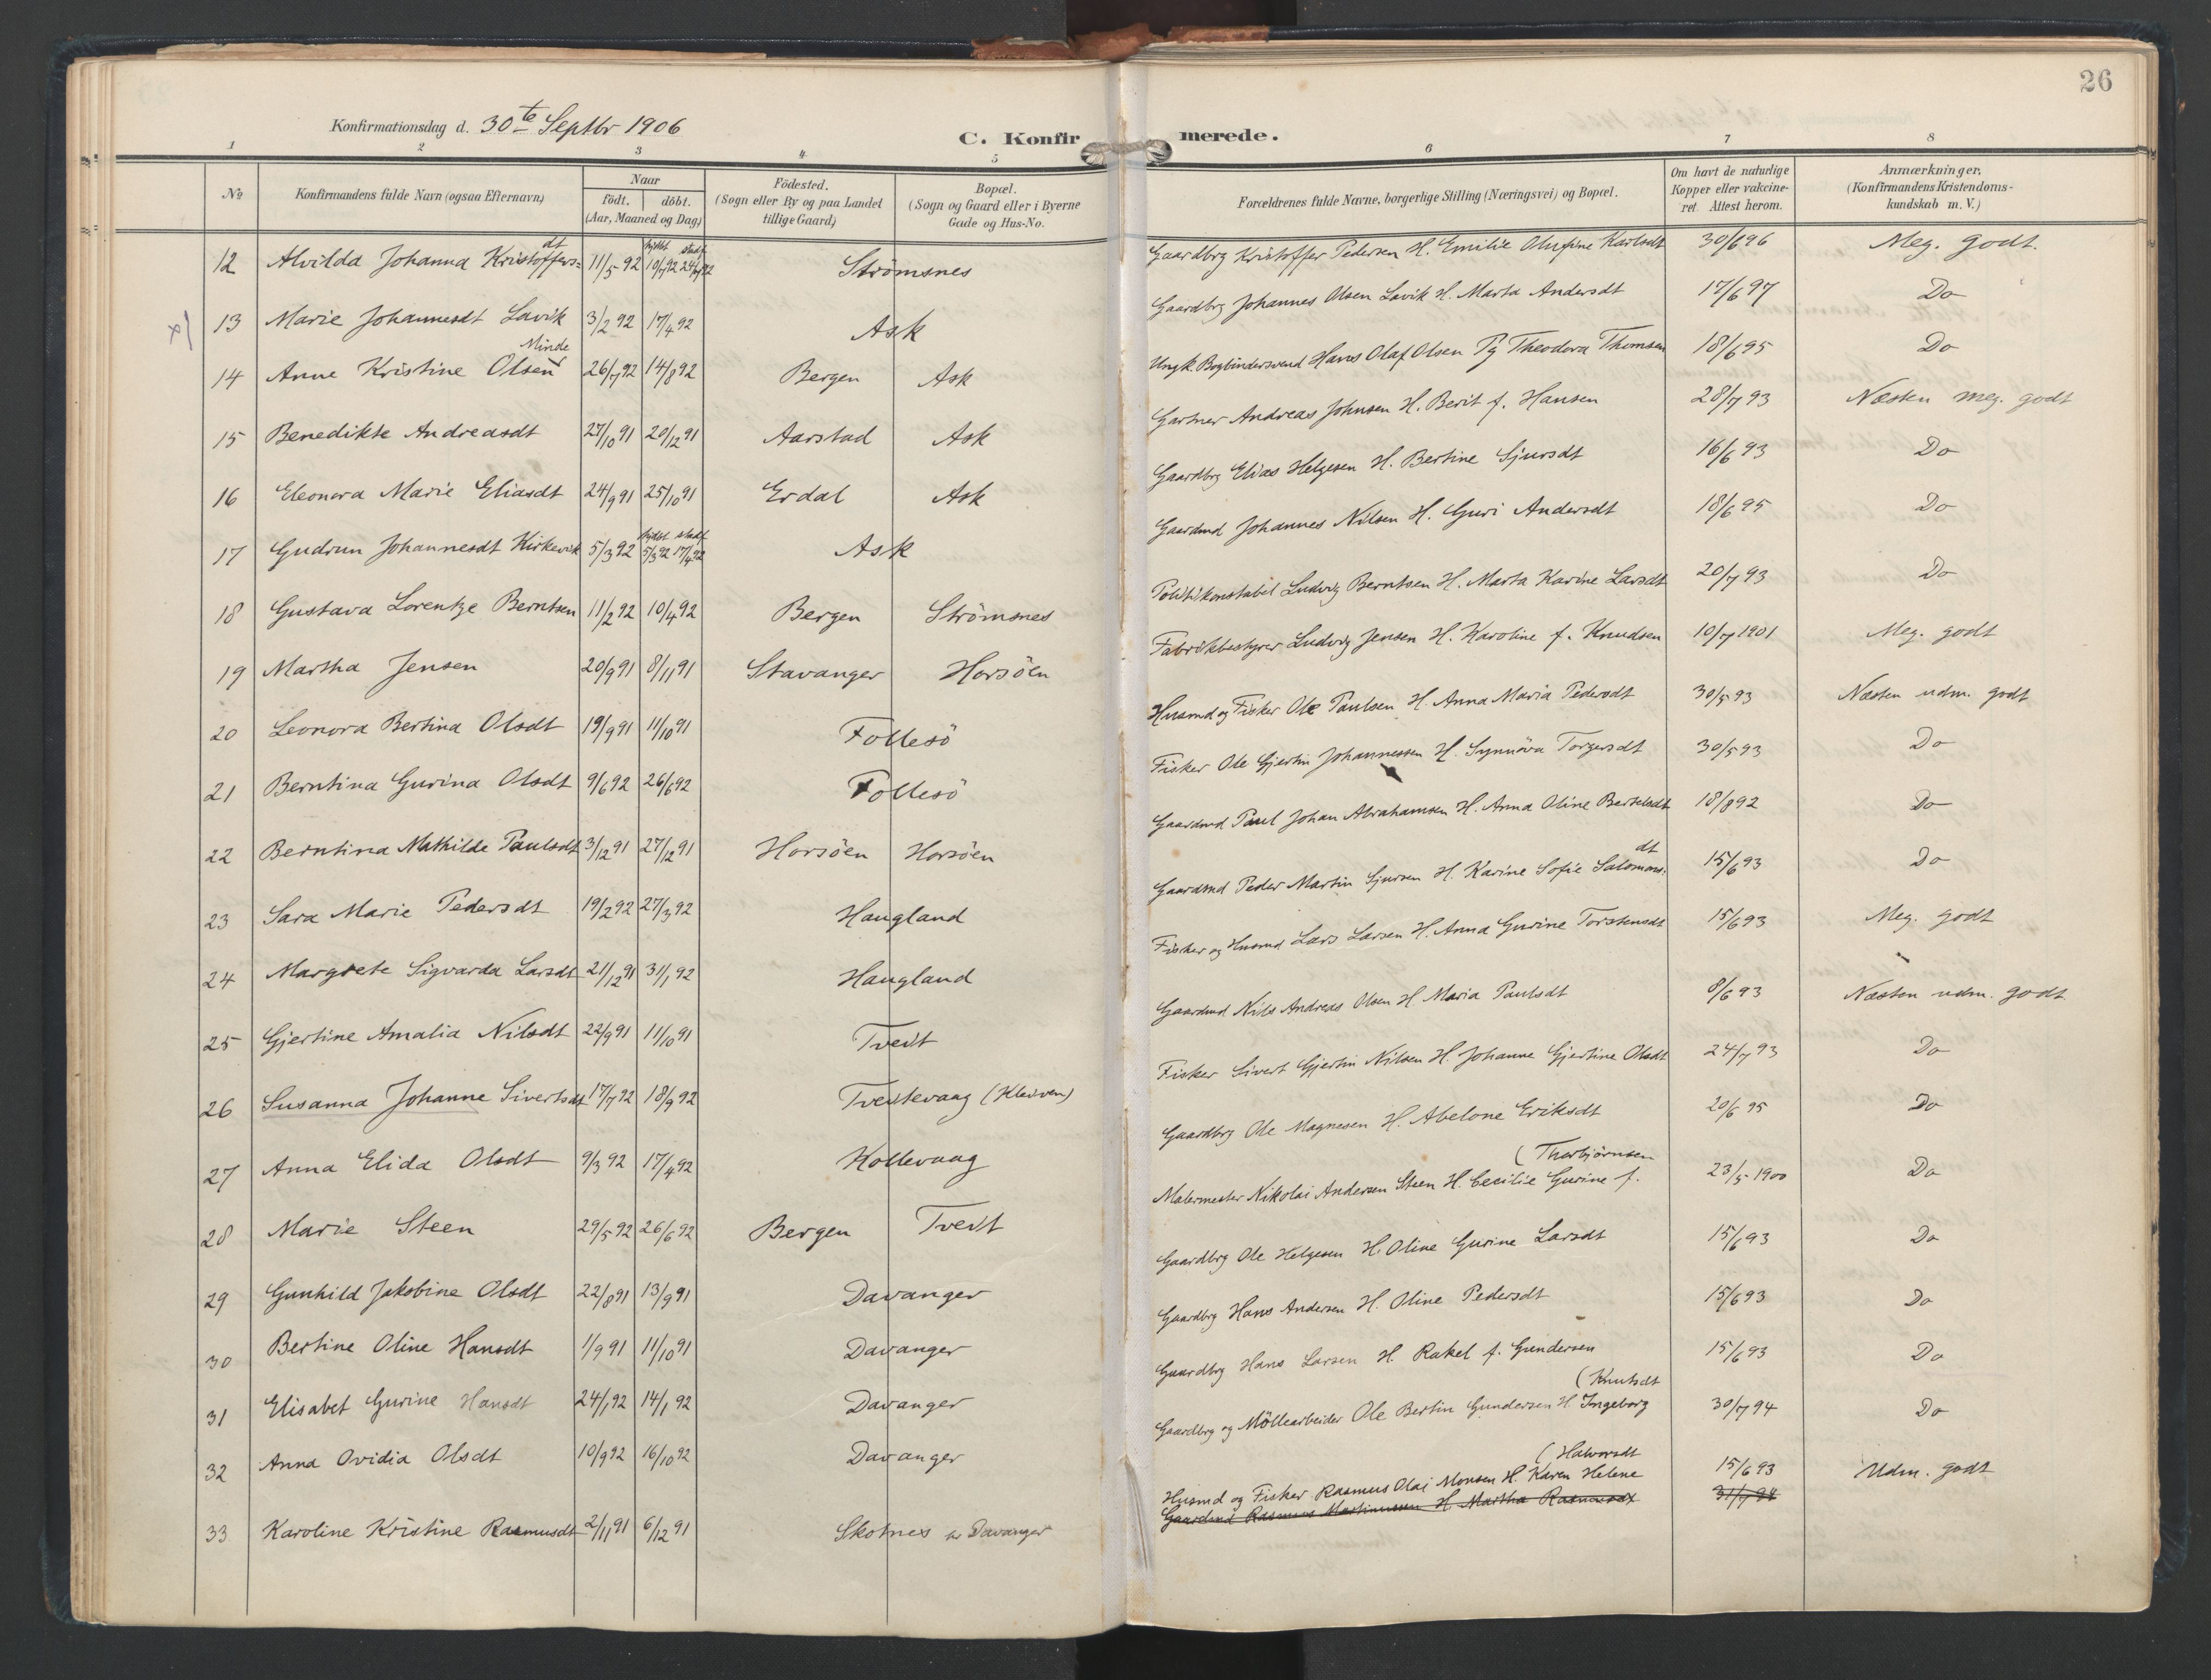 26
Konfirmationsdag d. 30te Septbr 1906
C. Konfirmerede.
1 2 3 4 5 6 7 8
No
Konfirmandens fulde Navn (ogsaa Efternavn)
Naar
födt. döbt.
(Aar, Maaned og Dag)
Födested.
(Sogn eller By og paa Landet
tillige Gaard)
Bopæl.
(Sogn og Gaard eller i Byerne
Gade og Hus-No.
Forældrenes fulde Navne, borgerlige Stilling (Næringsvei) og Bopæl.
Om havt de naturlige
Kopper eller vakcine-
ret. Attest herom.
Anmærkninger.
(Konfirmandens Kristendoms-
kundskab m. V.)
12 Alvilda Johanna Kristoffersdt 11/5 92 hjdbt 10/7 92 stadf 24/7 92 Strömsnes Gaardbrg Kristoffer Pedersen H. Emilie Olufine Karlsdt 30/6 96 Meg. godt.
13 Marie Johannesdt Lavik 3/2 92 17/4 92 Ask Gaardbrg Johannes Olsen Lavik H. Marta Andersdt 17/6 97 Do
14 Anne Kristine Olsen Minde 26/7 92 14/8 92 Bergen Ask Ungk. Bogbindersvend Hans Olaf Olsen Pg Theodora Thomsen 18/6 95 Do
15 Benedikte Andreasdt 27/10 91 20/12 91 Aarstad Ask Gartner Andreas Johnsen H. Berit f. Hansen 28/7 93 Næsten meg. godt
16 Eleonora Marie Eliasdt 24/9 91 25/10 91 Erdal Ask Gaardbrg Elias Helgesen H. Bertine Sjursdt 16/6 93 Do
17 Gudrun Johannesdt Kirkevik 5/3 92 hjdbt 5/3 92 stadf 17/4 92 Ask Gaardmd Johannes Nilsen H. Guri Andersdt 18/6 95 Do
18 Gustava Lorentze Berntsen 11/2 92 10/4 92 Bergen Strömsnes Politikonstabel Ludvig Berntsen H. Marta Karine Larsdt 20/7 93 Do
19 Martha Jensen 20/9 91 8/11 91 Stavanger Horsöen Fabrikbestyrer Ludvig Jensen H. Karoline f. Knudsen 10/7 1901 Meg. godt
20 Leonora Bertina Olsdt 19/9 91 11/10 91 Follesö Husmd og Fisker Ole Paulsen H. Anna Maria Pedersdt 30/5 93 Næsten udm. godt
21 Berntina Gurina Olsdt 9/6 92 26/6 92 Follesö Fisker Ole Gjertin Johannessen H. Synnöva Torgersdt 30/5 93 Do
22 Berntina Mathilde Paulsdt 3/12 91 27/12 91 Horsöen Horsöen Gaardmd Paul Johan Abrahamsen H. Anna Oline Bertelsdt 18/8 92 Do
23 Sara Marie Pedersdt 19/2 92 27/3 92 Haugland Gaardmd Peder Martin Sjursen H. Karine Sofie Salomonsdt 15/6 93 Do
24 Margrete Sigvarda Larsdt 21/12 91 31/1 92 Haugland Fisker og Husmd Lars Larsen H. Anna Gurine Torstensdt 15/6 93 Meg. godt
25 Gjertine Amalia Nilsdt 22/9 91 11/10 91 Tveit Gaardmd Nils Andreas Olsen H Maria Paulsdt 8/6 93 Næsten udm. godt
26 Susanna Johanne Sivertsdt 17/7 92 18/9 92 Tveitevaag (Kleiven) Fisker Sivert Gjertin Nilsen H. Johanne Gjertine Olsdt 24/7 93 Do
27 Anna Elida Olsdt 9/3 92 17/4 92 Kollevaag Gaardbrg Ole Magnesen H. Abelone Eriksdt 20/6 95 Do
28 Marie Steen 29/5 92 26/6 92 Bergen Tveit Malermester Nikolai Andersen Steen H. Cecilie Gurine f. (Thorbjørnsen 23/5 1900 Do
29 Gunhild Jakobine Olsdt 22/8 91 13/9 91 Davanger Gaardbrg Ole Helgesen H. Oline Gurine Larsdt 15/6 93 Do
30 Bertine Oline Hansdt 1/9 91 11/10 91 Davanger Gaardbrg Hans Andersen H. Oline Pedersdt 15/6 93 Do
31 Elisabet Gurine Hansdt 24/1 92 14/1 92 Davanger Gaardbrg Hans Larsen H. Rakel f. Gundersen 15/6 93 Do
32 Anna Ovidia Olsdt 10/9 92 16/10 92 Davanger Gaardbrg og Möllearbeider Ole Bertin Gundersen H. Ingeborg (Knutsdt 30/7 94 Do
33 Karoline Kristine Rasmusdt 2/11 91 6/12 91 Skotnes Davanger Husmd og Fisker Rasmus Olai Monsen H. Karen Helene (Halvorsdt 15/6 93 Udm. godt
Gaardmd Rasmus Martinussen H Martha Rasmusdt 31/7 94